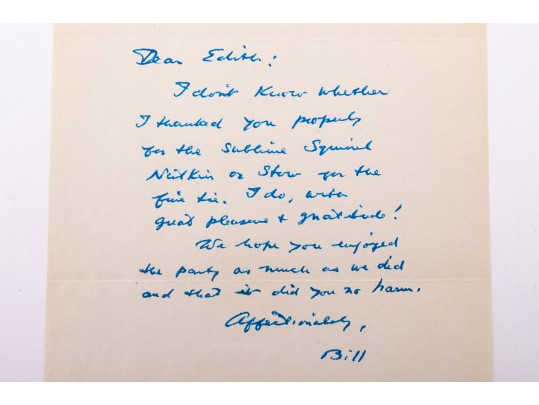 Dear Edith:
I don't know whether
I thanked you properly
for the Sublime Squirrel
Nutkin or Stow for the
fine tie. I do, with
great pleasure & gratitude!
We hope you enjoyed
the party as much as we did
and that it did you no harm.
Affectionately,
Bill